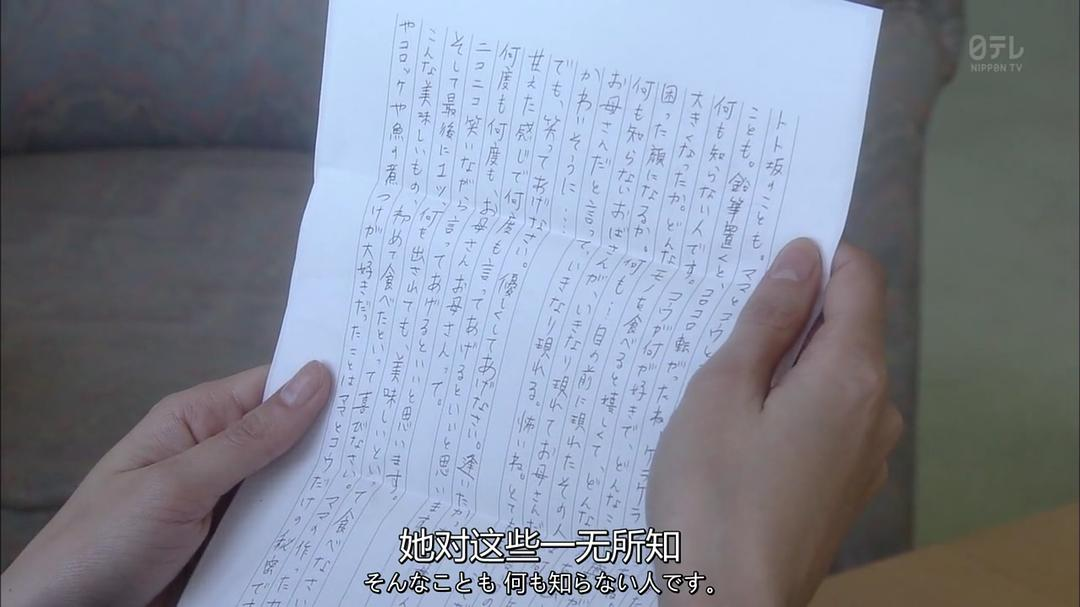 日テレ
NIPPON TV
トト坂のことも。ママとコウと
ことも。鉛筆置くと、コロコロ転がったね ケラケラ
何も知らない人です。コウが何が好きで、どんなこ
大きくなったか。どんなモノを食べると嬉しくて、どんな
困った顔になるか。何も…目の前に現れたその人
何も知らないおばさんが、いきなり現れてお母さんだ
お母さんだと言って、いきなり現れる。怖いね。とても
かわいそうに…
でも、笑ってあげなさい。優しくしてあげなさい。逢いたかっ
甘えた感じで何度も言ってあげるといいと思いま
何度も何度も、お母さんお母さんって。
ニコニコ笑いながら言ってあげるといいと思います。
そして最後に1ツ 何を出されても、美味しいといって食べなさい
こんな美味しいもの、初めて食べたといって喜びなさい。ママの作ったカ
やコロッケや魚の煮つけが大好きだったことはママとコウだけの秘密で
她对这些一无所知
そんなことも 何も知らない人です。